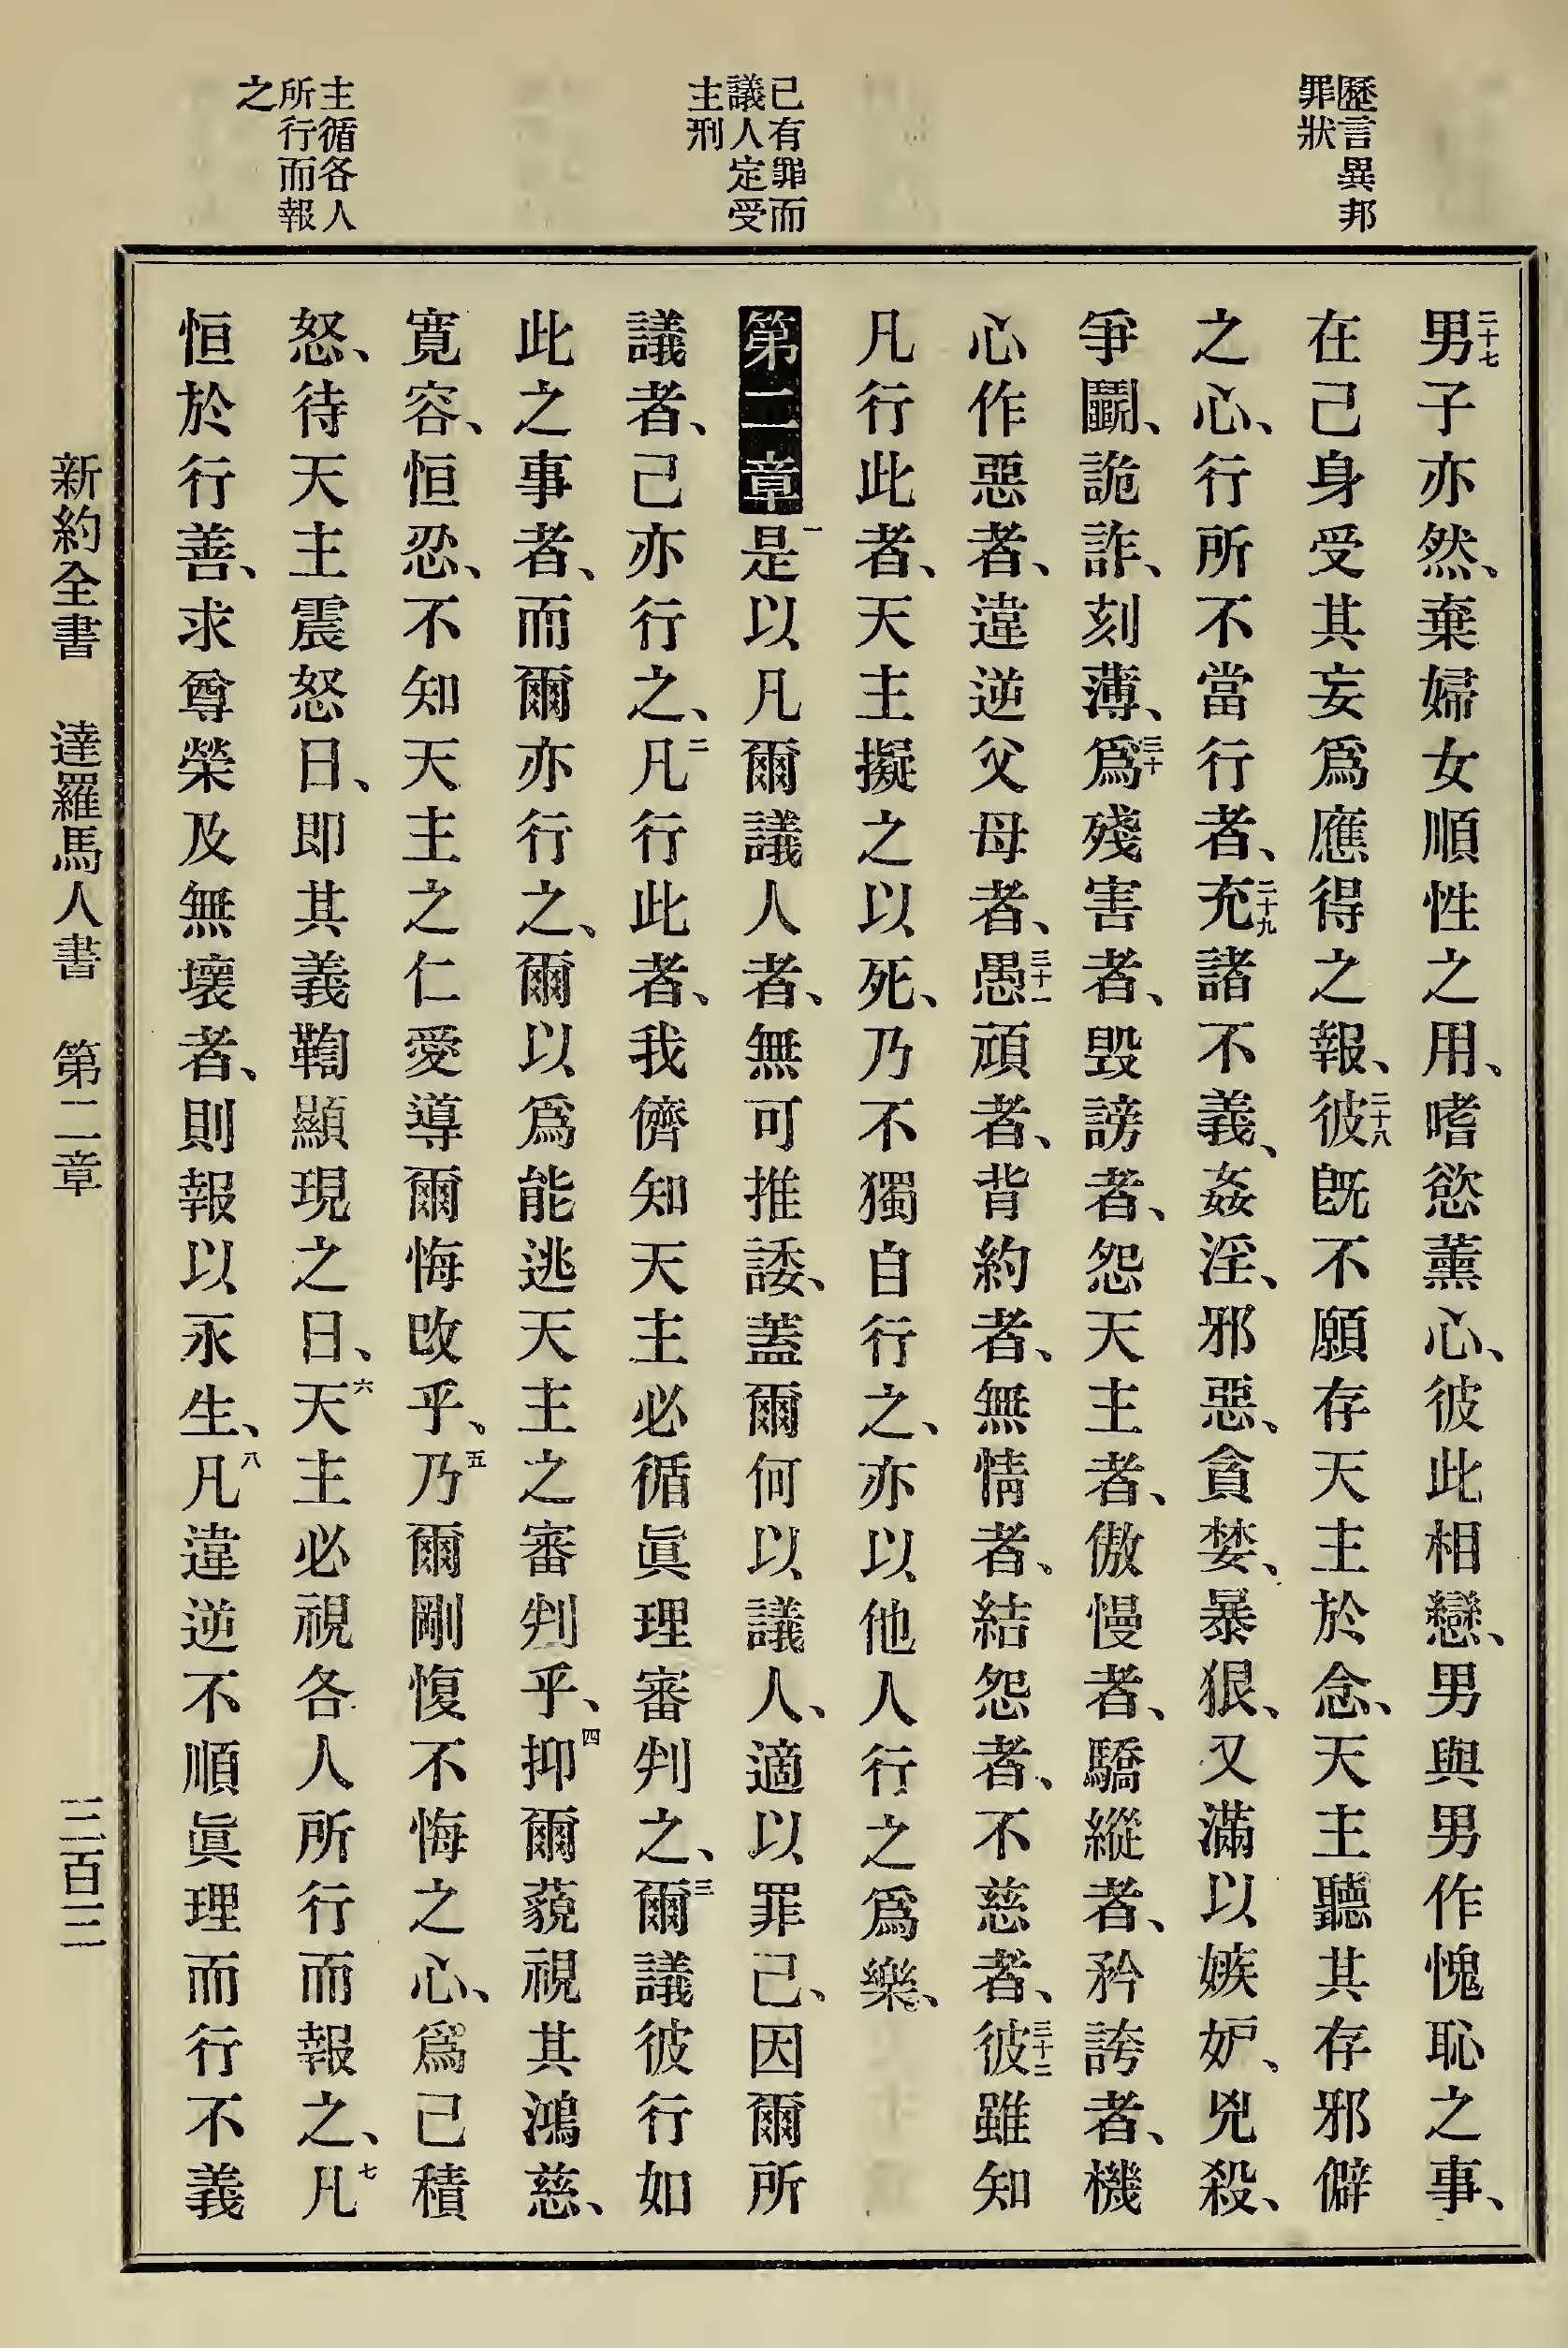 歷言異邦
罪狀
已有罪而
議人定受
主刑
主循各人
所行而報
之
二十七男子亦然、棄婦女順性之用、嗜慾薰心、彼此相戀、男與男作愧恥之事、
在己身受其妄爲應得之報、二十八彼旣不願存天主於念、天主聽其存邪僻
之心、行所不當行者、二十九充諸不義、姦淫、邪惡、貪婪、暴狠、又滿以嫉妒、兇殺、
爭鬭、詭詐、刻薄、三十爲殘害者、毀謗者、怨天主者、傲慢者、驕縱者、矜誇者、機
心作惡者、違逆父母者、三十一愚頑者、背約者、無情者、結怨者、不慈者、三十二彼雖知
凡行此者、天主擬之以死、乃不獨自行之、亦以他人行之爲樂、
第二章一是以凡爾議人者、無可推諉、蓋爾何以議人、適以罪己、因爾所
議者、己亦行之、二凡行此者、我儕知天主必循眞理審判之、三爾議彼行如
此之事者、而爾亦行之、爾以爲能逃天主之審判乎、四抑爾藐視其鴻慈、
寬容、恒忍、不知天主之仁愛導爾悔改乎、五乃爾剛愎不悔之心、爲己積
怒、待天主震怒日、即其義鞫顯現之日、六天主必視各人所行而報之、七凡
恒於行善、求尊榮及無壞者、則報以永生、八凡違逆不順眞理而行不義
新約全書 達羅馬人書 第二章 三百三